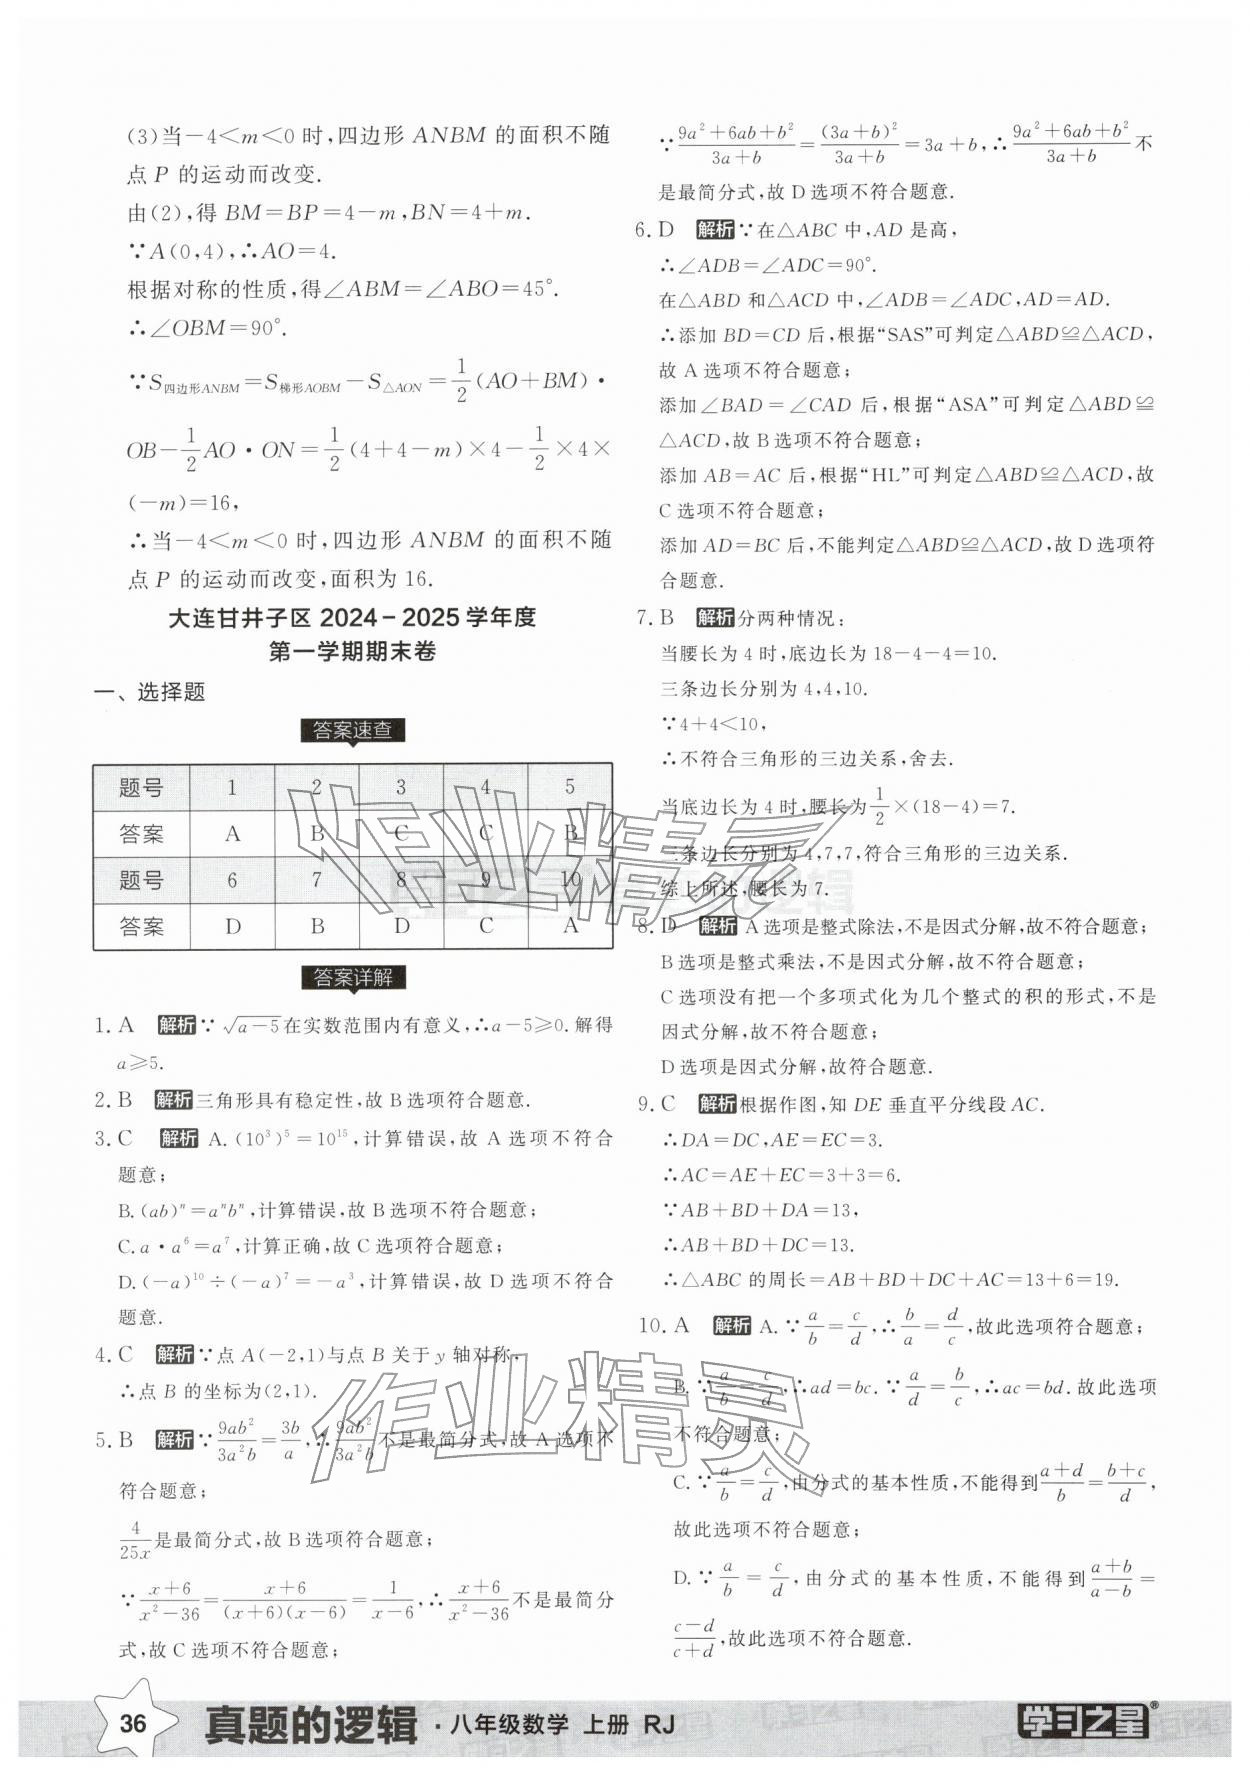 (3)当－4＜m＜0 时,四边形 ANBM 的面积不随
点 P 的运动而改变.
由(2),得 BM＝BP＝4－m,BN＝4＋m.
∵A(0,4),∴AO＝4.
根据对称的性质,得∠ABM＝∠ABO＝45°.
∴∠OBM＝90°.
∵S四边形ANBM＝S梯形AOBM－S△AON＝1/2(AO＋BM)·
OB－1/2AO·ON＝1/2(4＋4－m)×4－1/2×4×
(－m)＝16,
∴当－4＜m＜0 时,四边形 ANBM 的面积不随
点 P 的运动而改变,面积为 16.
大连甘井子区 2024－2025 学年度
第一学期期末卷
一、选择题
答案速查
题号 1 2 3 4 5
答案 A B C C B
题号 6 7 8 9 10
答案 D B D C A
答案详解
1. A 解析∵√(a－5)在实数范围内有意义,∴a－5≥0.解得
a≥5.
2. B 解析三角形具有稳定性,故 B 选项符合题意.
3. C 解析 A.(10³)⁵＝10¹⁵,计算错误,故 A 选项不符合
题意;
B.(ab)ⁿ＝aⁿbⁿ,计算错误,故 B 选项不符合题意;
C.a·a⁶＝a⁷,计算正确,故 C 选项符合题意;
D.(－a)¹⁰÷(－a)⁷＝－a³,计算错误,故 D 选项不符合
题意.
4. C 解析∵点 A(－2,1)与点 B 关于 y 轴对称,
∴点 B 的坐标为(2,1).
5. B 解析∵9ab²/3a²b＝3b/a,∴9ab²/3a²b不是最简分式,故 A 选项不
符合题意;
4/25x是最简分式,故 B 选项符合题意;
∵(x＋6)/(x²－36)＝(x＋6)/((x＋6)(x－6))＝1/(x－6),∴(x＋6)/(x²－36)不是最简分
式,故 C 选项不符合题意;
∵(9a²＋6ab＋b²)/(3a＋b)＝(3a＋b)²/(3a＋b)＝3a＋b,∴(9a²＋6ab＋b²)/(3a＋b)不
是最简分式,故 D 选项不符合题意.
6. D 解析∵在△ABC 中,AD 是高,
∴∠ADB＝∠ADC＝90°.
在△ABD 和△ACD 中,∠ADB＝∠ADC,AD＝AD.
∴添加 BD＝CD 后,根据“SAS”可判定△ABD≌△ACD,
故 A 选项不符合题意;
添加∠BAD＝∠CAD 后,根据“ASA”可判定△ABD≌
△ACD,故 B 选项不符合题意;
添加 AB＝AC 后,根据“HL”可判定△ABD≌△ACD,故
C 选项不符合题意;
添加 AD＝BC 后,不能判定△ABD≌△ACD,故 D 选项符
合题意.
7. B 解析分两种情况:
当腰长为 4 时,底边长为 18－4－4＝10.
三条边长分别为 4,4,10.
∵4＋4＜10,
∴不符合三角形的三边关系,舍去.
当底边长为 4 时,腰长为1/2×(18－4)＝7.
三条边长分别为 4,7,7,符合三角形的三边关系.
综上所述,腰长为 7.
8. D 解析 A 选项是整式除法,不是因式分解,故不符合题意;
B 选项是整式乘法,不是因式分解,故不符合题意;
C 选项没有把一个多项式化为几个整式的积的形式,不是
因式分解,故不符合题意;
D 选项是因式分解,故符合题意.
9. C 解析根据作图,知 DE 垂直平分线段 AC.
∴DA＝DC,AE＝EC＝3.
∴AC＝AE＋EC＝3＋3＝6.
∵AB＋BD＋DA＝13,
∴AB＋BD＋DC＝13.
∴△ABC 的周长＝AB＋BD＋DC＋AC＝13＋6＝19.
10. A 解析 A.∵a/b＝c/d,∴b/a＝d/c,故此选项符合题意;
B.∵a/b＝c/d,∴ad＝bc.∵a/d＝b/c,∴ac＝bd.故此选项
不符合题意;
C.∵a/b＝c/d,由分式的基本性质,不能得到(a＋d)/b＝(b＋c)/d,
故此选项不符合题意;
D.∵a/b＝c/d,由分式的基本性质,不能得到(a＋b)/(a－b)＝
(c－d)/(c＋d),故此选项不符合题意.
作业精灵
作业精灵
36 真题的逻辑·八年级数学 上册 RJ
学习之星®